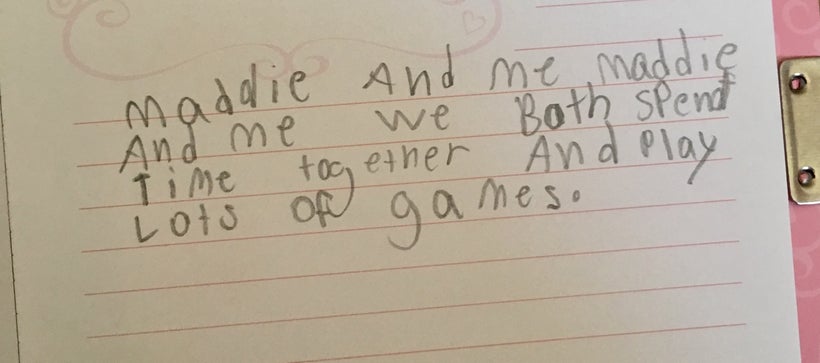 maddie And me maddie
And me we Both spend
Time together And play
Lots of games.